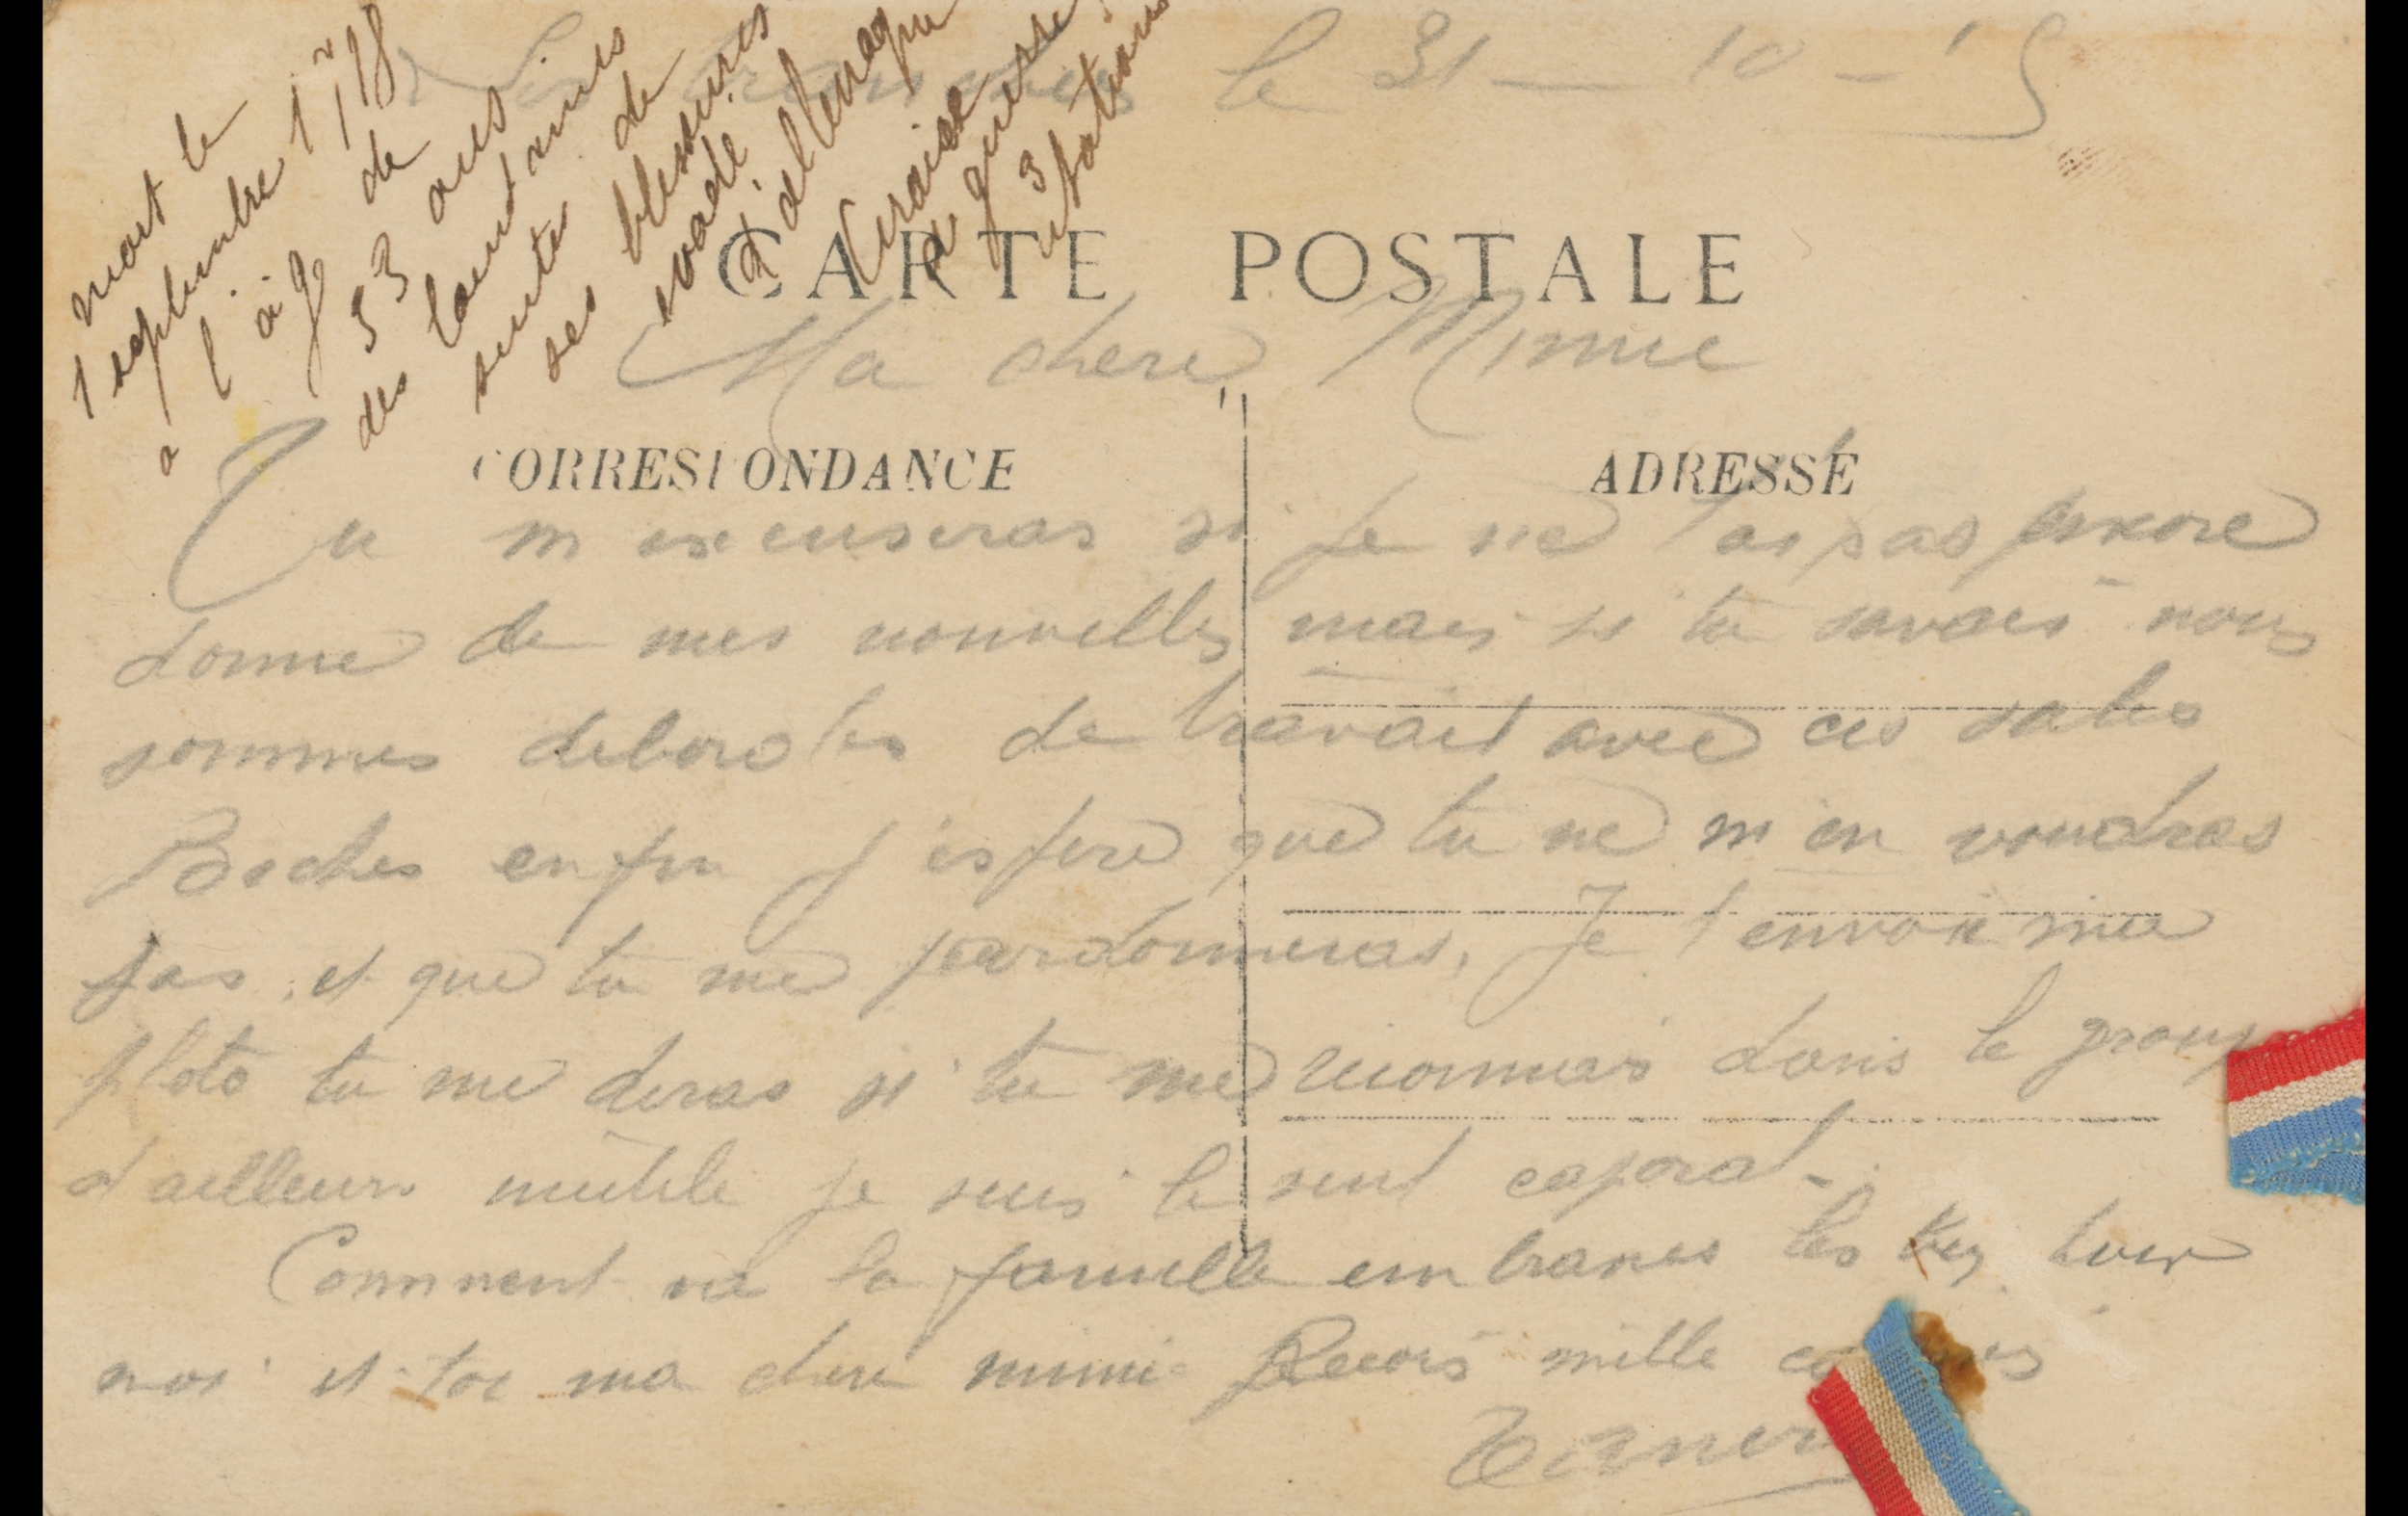 mort le
1 septembre 1918
a l'age de
53 ans
des lointaines
suites de
ses blessures
evadé
d'allemagne
Croix
de guerre
3
citations
les tranchées le 31 — 10 — 15
CARTE POSTALE
Ma chere Mimie
CORRESPONDANCE ADRESSE
Tu m excuseras si je ne t'ai pas encore
donne de mes nouvelles mais si tu savais nous
sommes debordes de travail avec ces sales
Boches enfin j espere que tu ne m en voudras
pas, et que tu me pardonneras, Je t envoie ma
photo tu me diras si tu me reconnais dans le group
d ailleurs inutile je suis le seul caporal -
Comment va la famille embrasses les bien pour
moi et toi ma chere mimi Recois mille